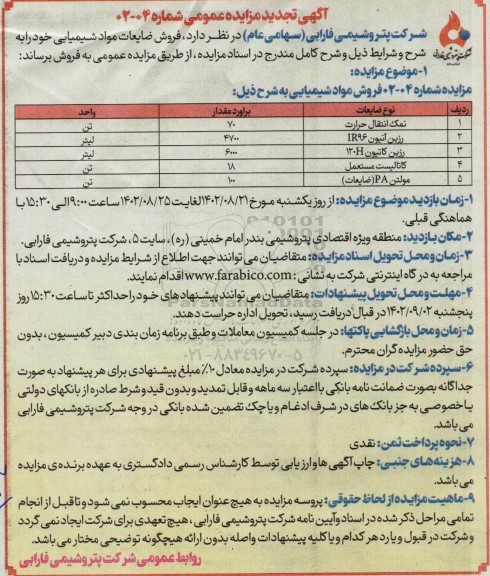 آگهی تجدید مزایده عمومی شماره ۰۴-۰۲
شرکت پتروشیمی فارابی (سهامی عام) در نظر دارد، فروش ضایعات مواد شیمیایی خود را به
شرح و شرایط ذیل و شرح کامل مندرج در اسناد مزایده، از طریق مزایده عمومی به فروش برساند:
۱-موضوع مزایده:
مزایده شماره ۰۴-۰۲ فروش مواد شیمیایی به شرح ذیل:
ردیف نوع ضایعات برآورد مقدار واحد
۱ نمک انتقال حرارت ۷۰ تن
۲ رزین آنیون IR۹۶ ۴۷۰۰ لیتر
۳ رزین کاتیون ۱۲۰H ۶۰۰۰ لیتر
۴ کاتالیست مستعمل ۱۸ تن
۵ مولتن PA(ضایعات) ۱۰۰ تن
۱-زمان بازدید موضوع مزایده: از روز یکشنبه مورخ ۱۴۰۲/۰۸/۲۱ لغایت ۱۴۰۲/۰۸/۲۵ ساعت ۹:۰۰ الی ۱۵:۳۰ با
هماهنگی قبلی.
۲-مکان بازدید: منطقه ویژه اقتصادی پتروشیمی بندر امام خمینی (ره)، سایت ۵، شرکت پتروشیمی فارابی.
۳-زمان و محل تحویل اسناد مزایده: متقاضیان می توانند جهت اطلاع از شرایط مزایده و دریافت اسناد با
مراجعه به درگاه اینترنتی شرکت به نشانی: www.farabico.com اقدام نمایند.
۴-مهلت و محل تحویل پیشنهادات: متقاضیان می توانند پیشنهادهای خود را حداکثر تا ساعت ۱۵:۳۰ روز
پنجشنبه ۱۴۰۲/۰۹/۰۲ در قبال دریافت رسید، تحویل اداره حراست دهند.
۵-زمان و محل بازگشایی پاکتها: در جلسه کمیسیون معاملات و طبق برنامه زمان بندی دبیر کمیسیون، بدون
حق حضور مزایده گران محترم.
۶-سپرده شرکت در مزایده: سپرده شرکت در مزایده معادل ۱۰٪ مبلغ پیشنهادی برای هر پیشنهاد به صورت
جداگانه بصورت ضمانت نامه بانکی با اعتبار سه ماهه و قابل تمدید و بدون قید و شرط صادره از بانکهای دولتی
یا خصوصی به جز بانک های در شرف ادغام و یا چک تضمین شده بانکی در وجه شرکت پتروشیمی فارابی
می باشد.
۷-نحوه پرداخت ثمن: نقدی
۸-هزینه های جنبی: چاپ آگهی ها و ارزیابی توسط کارشناس رسمی دادگستری به عهده برنده ی مزایده
می باشد.
۹-ماهیت مزایده از لحاظ حقوقی: پروسه مزایده به هیچ عنوان ایجاب محسوب نمی شود و تا قبل از انجام
تمامی مراحل ذکر شده در اسناد و آیین نامه شرکت پتروشیمی فارابی، هیچ تعهدی برای شرکت ایجاد نمی گردد
و شرکت در قبول و یا رد هر کدام و یا کلیه پیشنهادات واصله بدون ارائه هیچگونه توضیحی مختار می باشد.
روابط عمومی شرکت پتروشیمی فارابی